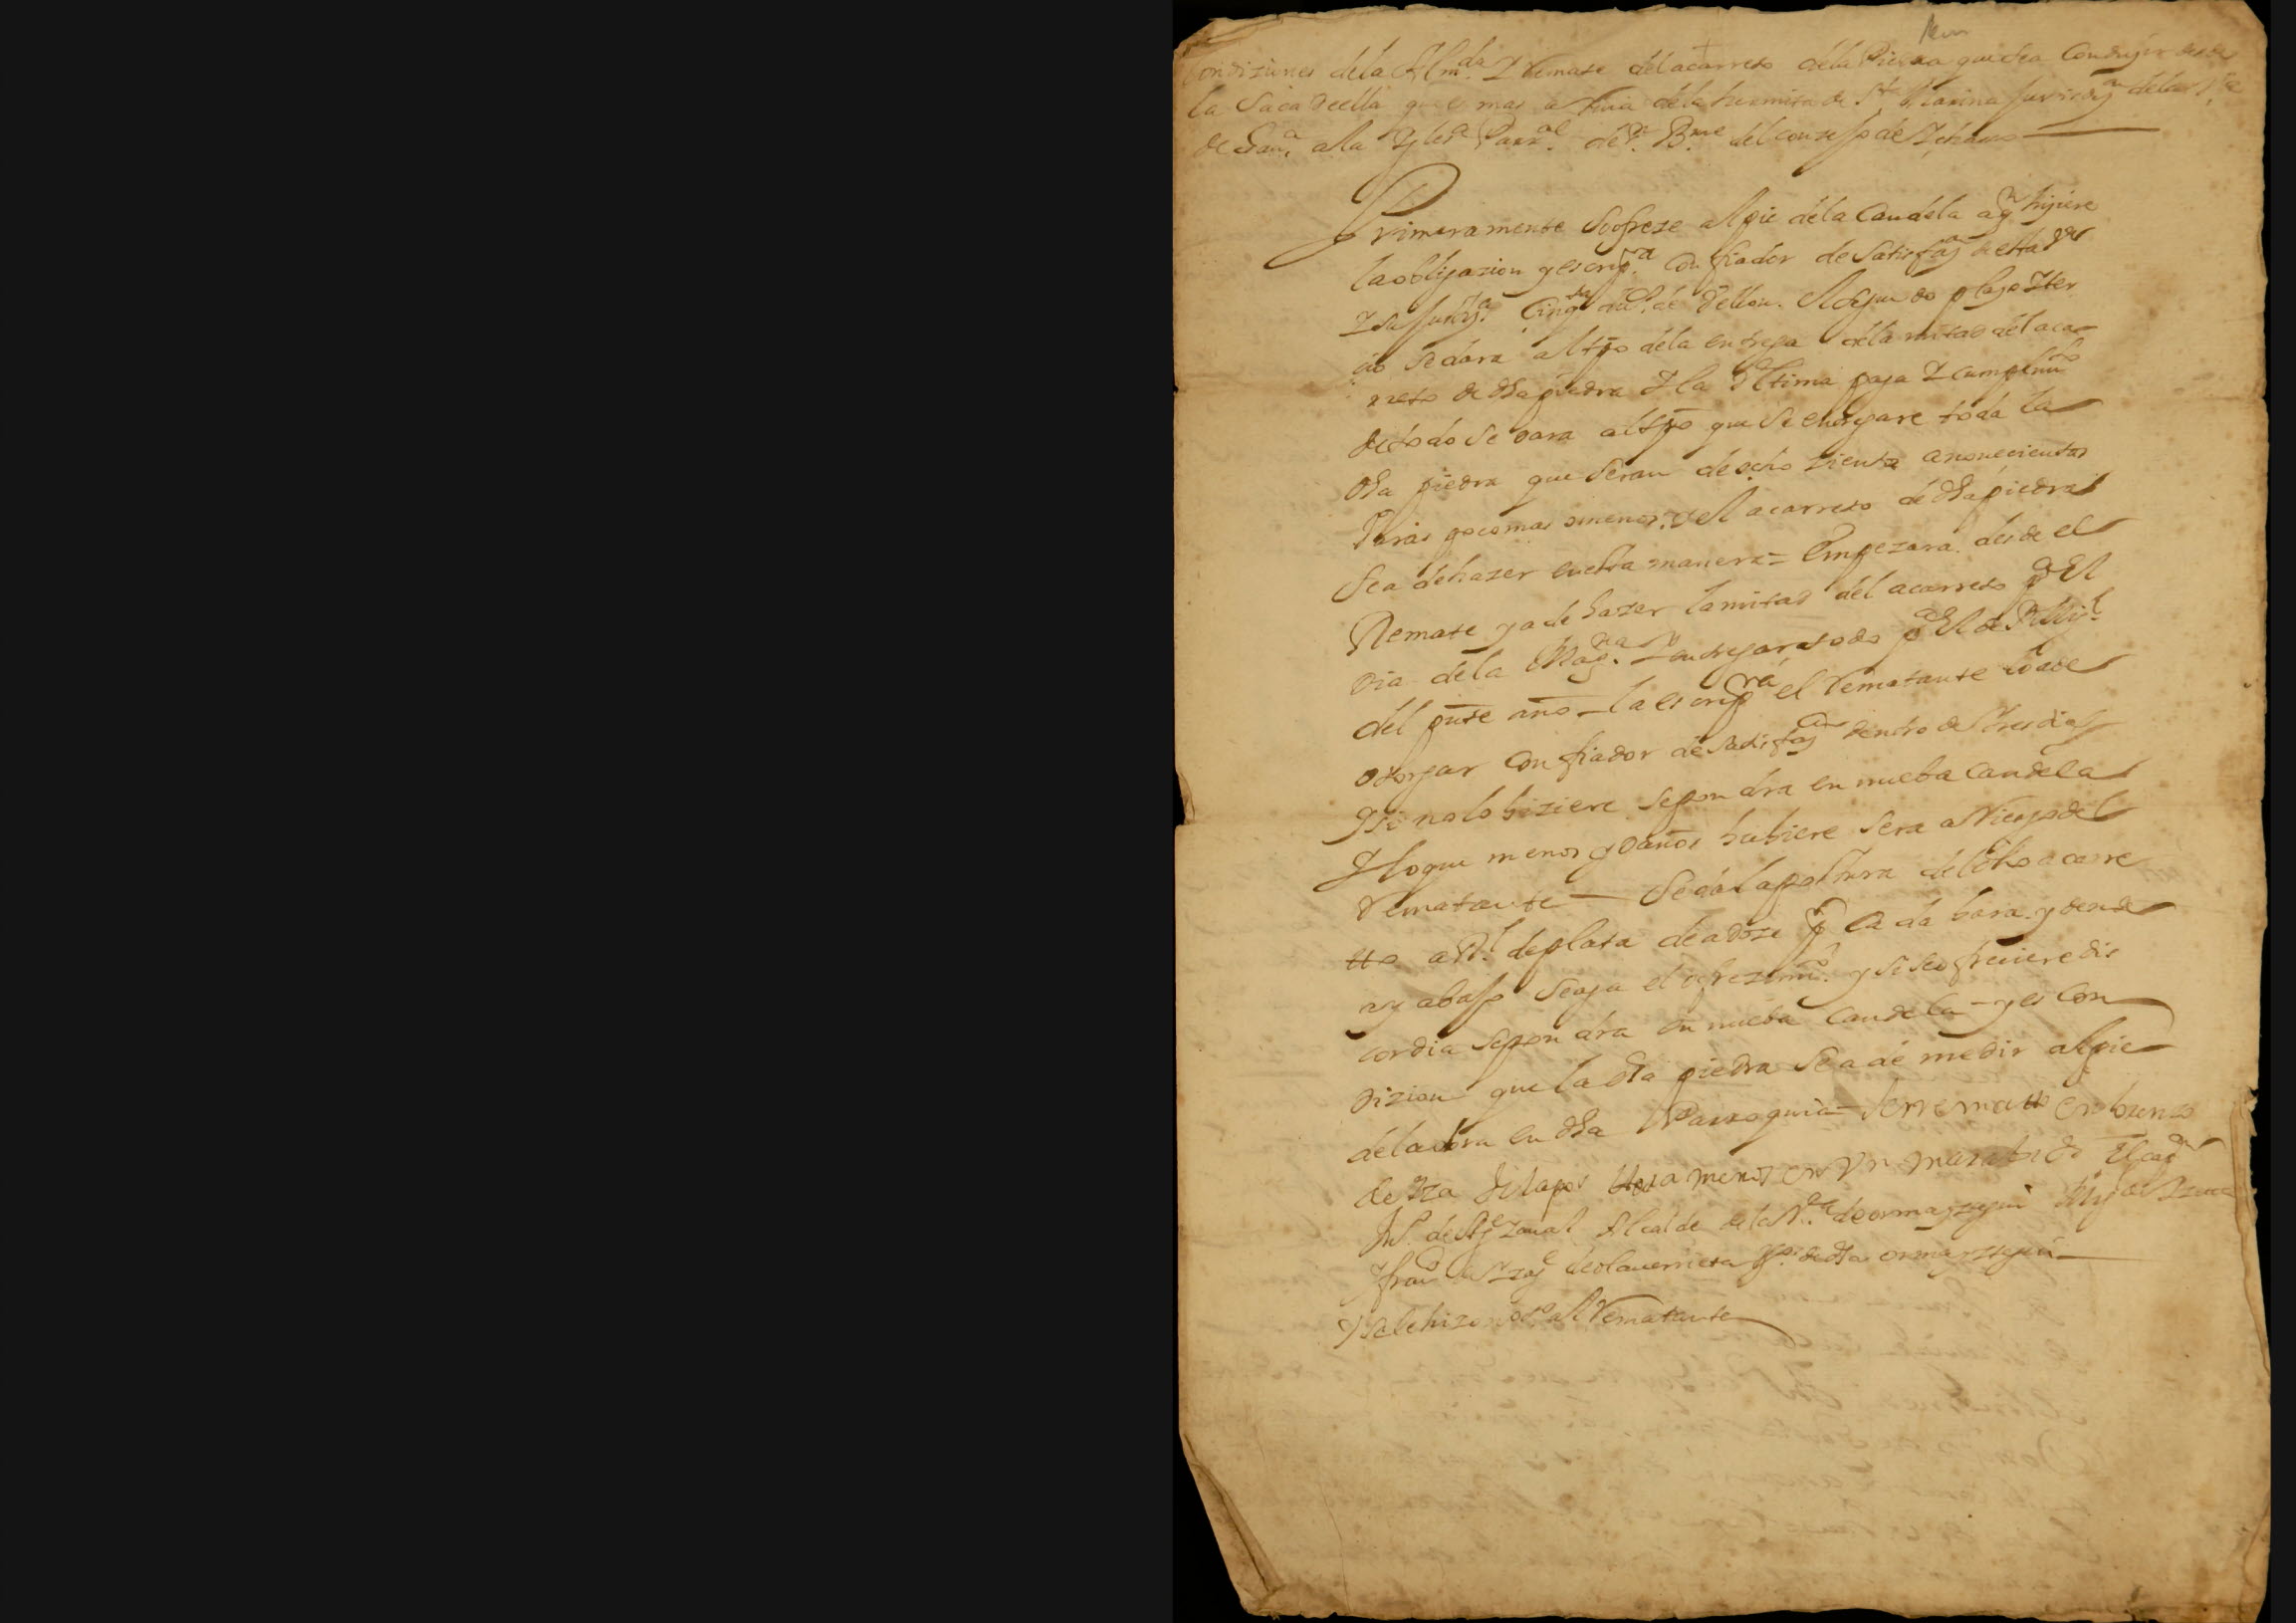 Condiziones dela Alm.da Y Remate del acarreto dela Piedra que sea Conduzir desde
la Saca de ella que mas arriva dela hermita de S.ta Marina Juridi.on dela
ala Ygles.a Parr.al de S.n B.me del conzejo de
Primeramente Se ofreze al pie dela Candela a q.n hiziere
la obligazion y escrip.ra Con fiador de Satisfa.on
Y su Juridi.on Cinq.ta du.s de Vellon. El segundo plazo Y ter
cio se dara al tpo dela entrega dela mitad del aca-
rreto de dha piedra Y la Vltima paga Y cumplim.to
de todo se dara al tpo que se entregare toda la
dha piedra que seran de ocho zientas a nouecientas
Varas poco mas o menos. Y el acarreto de dha piedra
Sea de hazer en esta manera = Empezara desde el
Remate y a de hazer la mitad del acarreto p.a El
dia dela Mag.na Y entregar todo p.a El de S.n Mig.l
del pnte año - la escrip.ra el Rematante lo a de
otorgar Con fiador de Satisfa.on dentro de tres dias
Y si no lo hiziere se pondra en nueba Candela
Y lo que menos y daños hubiere sera a Riesgo del
Rematante — Se da la postura del dho acarre
tto a R.l de plata de a doze p.r Cada bara. y dende
ay abajo se aga el ofrezim.to y si se ofreciere dis
cordia se pondra en nueba Candela - y es Con
dizion que la dha piedra Sea de medir al pie
dela obra en dha Parroquia = Se rematto en
de Yza Vara menos en Vn marabedi
Alcalde dela V.a de ormayztegui
de olauerrieta V.os de dha ormayztegui
Y se le hizo not.o al Rematante